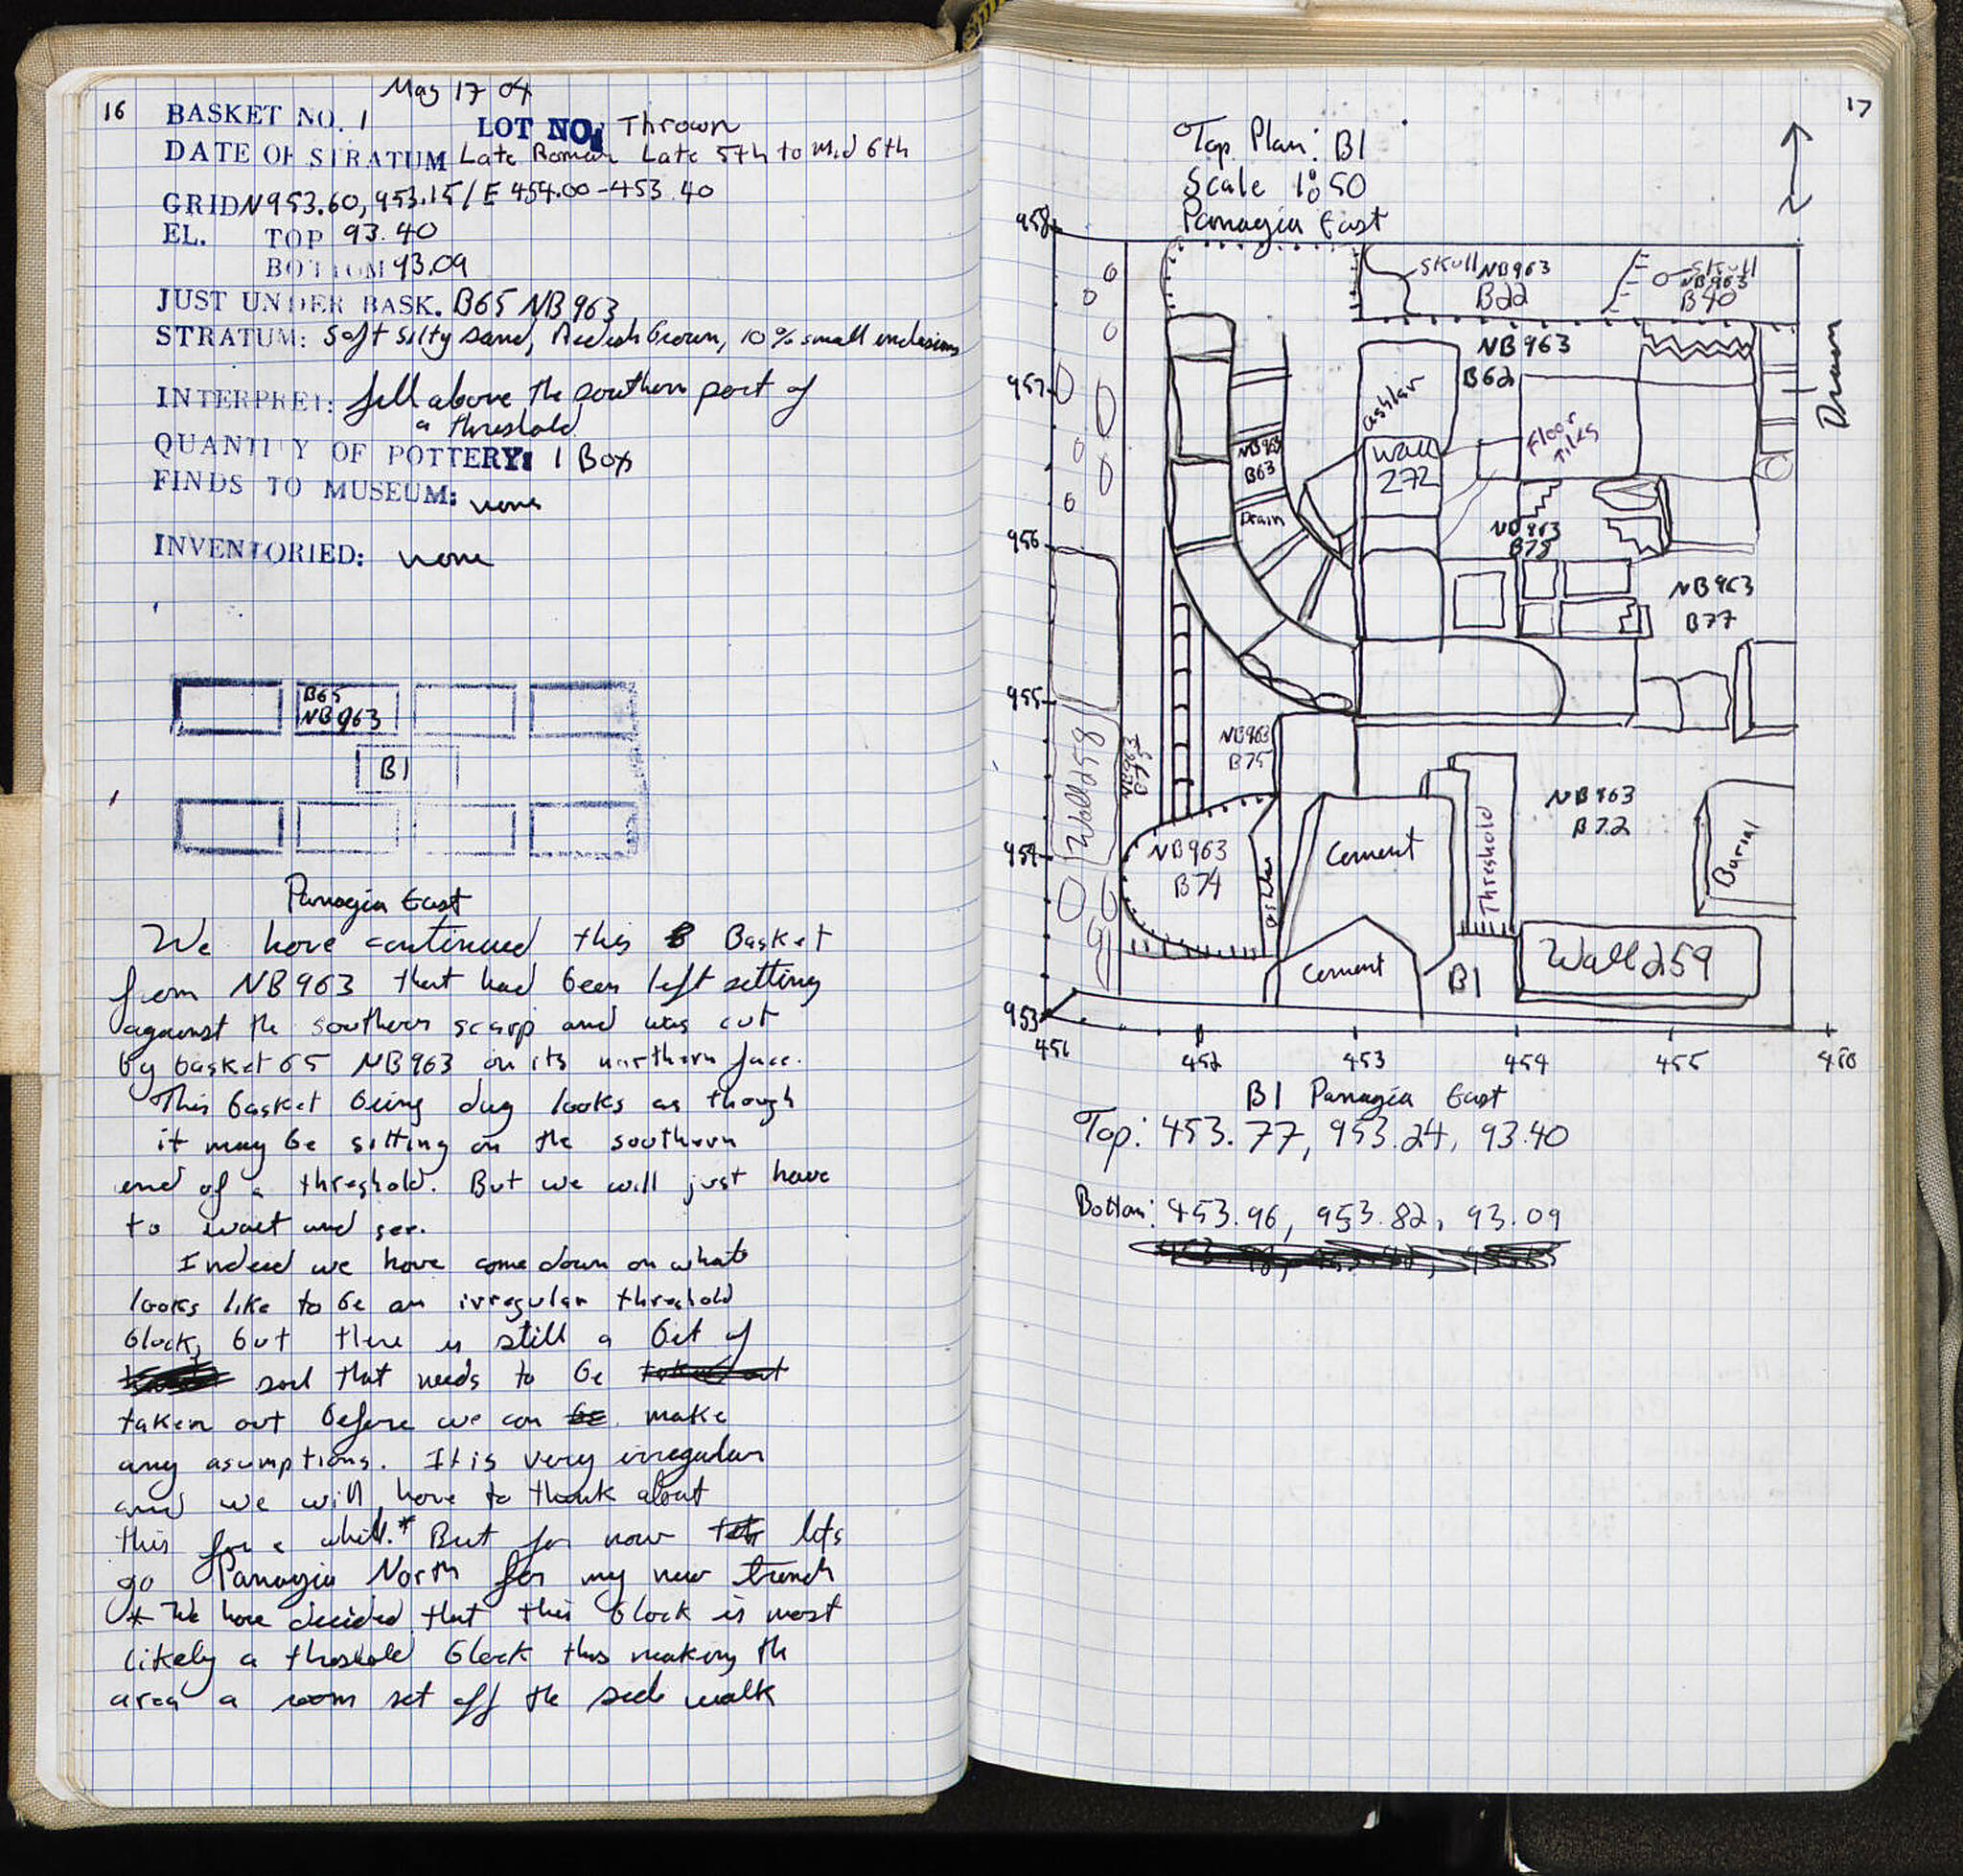 16
May 17 04
BASKET NO. 1
LOT NO. Thrown
DATE OF STRATUM Late Roman Late 5th to Mid 6th
GRID N953.60, 953.15 / E 454.00-453.40
EL. TOP 93.40
BOTTOM 93.09
JUST UNDER BASK. B65 NB963
STRATUM: Soft silty sand, Redish brown, 10% small inclusions
INTERPRET: fill above the southern part of
a threshold
QUANTITY OF POTTERY: 1 Box
FINDS TO MUSEUM: none
INVENTORIED: none
B65
NB963
B1
Panagia East
We have continued this Basket
from NB963 that had been left sitting
against the southern scarp and was cut
by basket 65 NB963 on its northern face.
This basket being dug looks as though
it may be sitting on the southern
end of a threshold. But we will just have
to wait and see.
Indeed we have come down on what
looks like to be an irregular threshold
block, but there is still a bit of
soil that needs to be
taken out before we can make
any asumptions. It is very irregular
and we will have to think about
this for a while.* But for now lets
go Panagia North for my new trench
* We have decided that this block is most
likely a threshold block thus making the
area a room set off the side walk
17
Top Plan: B1
Scale 1:50
Panagia East
958
957
956
955
954
953
451
452
453
454
455
456
Skull NB963
B22
Skull
NB963
B40
NB963
B62
Drain
ashlar
Wall
272
Floor
Tiles
NB963
B63
Drain
NB963
B78
NB963
B77
Wall 258
NB963
B75
NB963
B72
NB963
B74
ashlar
Cement
Threshold
Burial
Cement
B1
Wall 259
B1 Panagia East
Top: 453.77, 953.24, 93.40
Bottom: 453.96, 953.82, 93.09